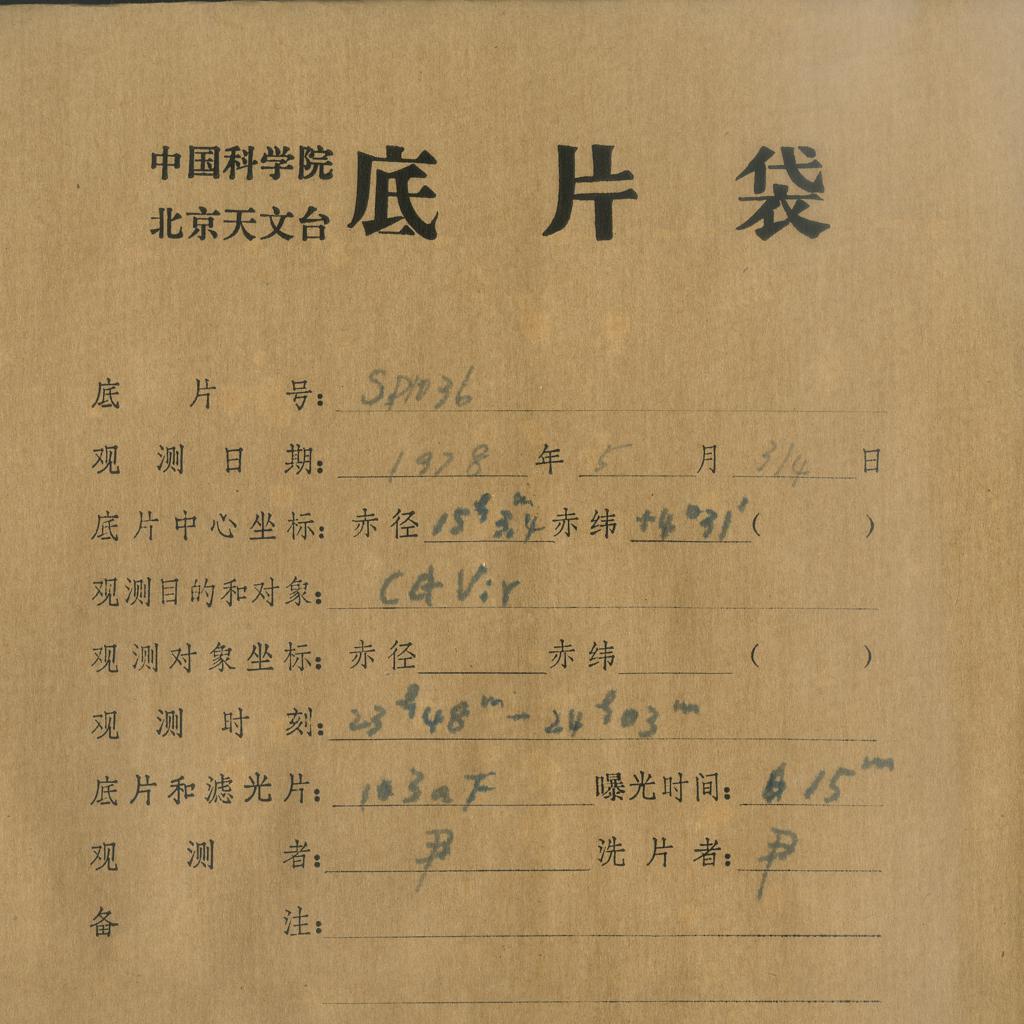 中国科学院
北京天文台
底片袋
底片号：SP1036
观测日期：1978年5月3/4日
底片中心坐标：赤径15h 3m.4赤纬+4°31′（ ）
观测目的和对象： Vir
观测对象坐标：赤径 赤纬 （ ）
观测时刻：23h48m-24h03m
底片和滤光片：103aF 曝光时间：15m
观测者：尹 洗片者：尹
备注：